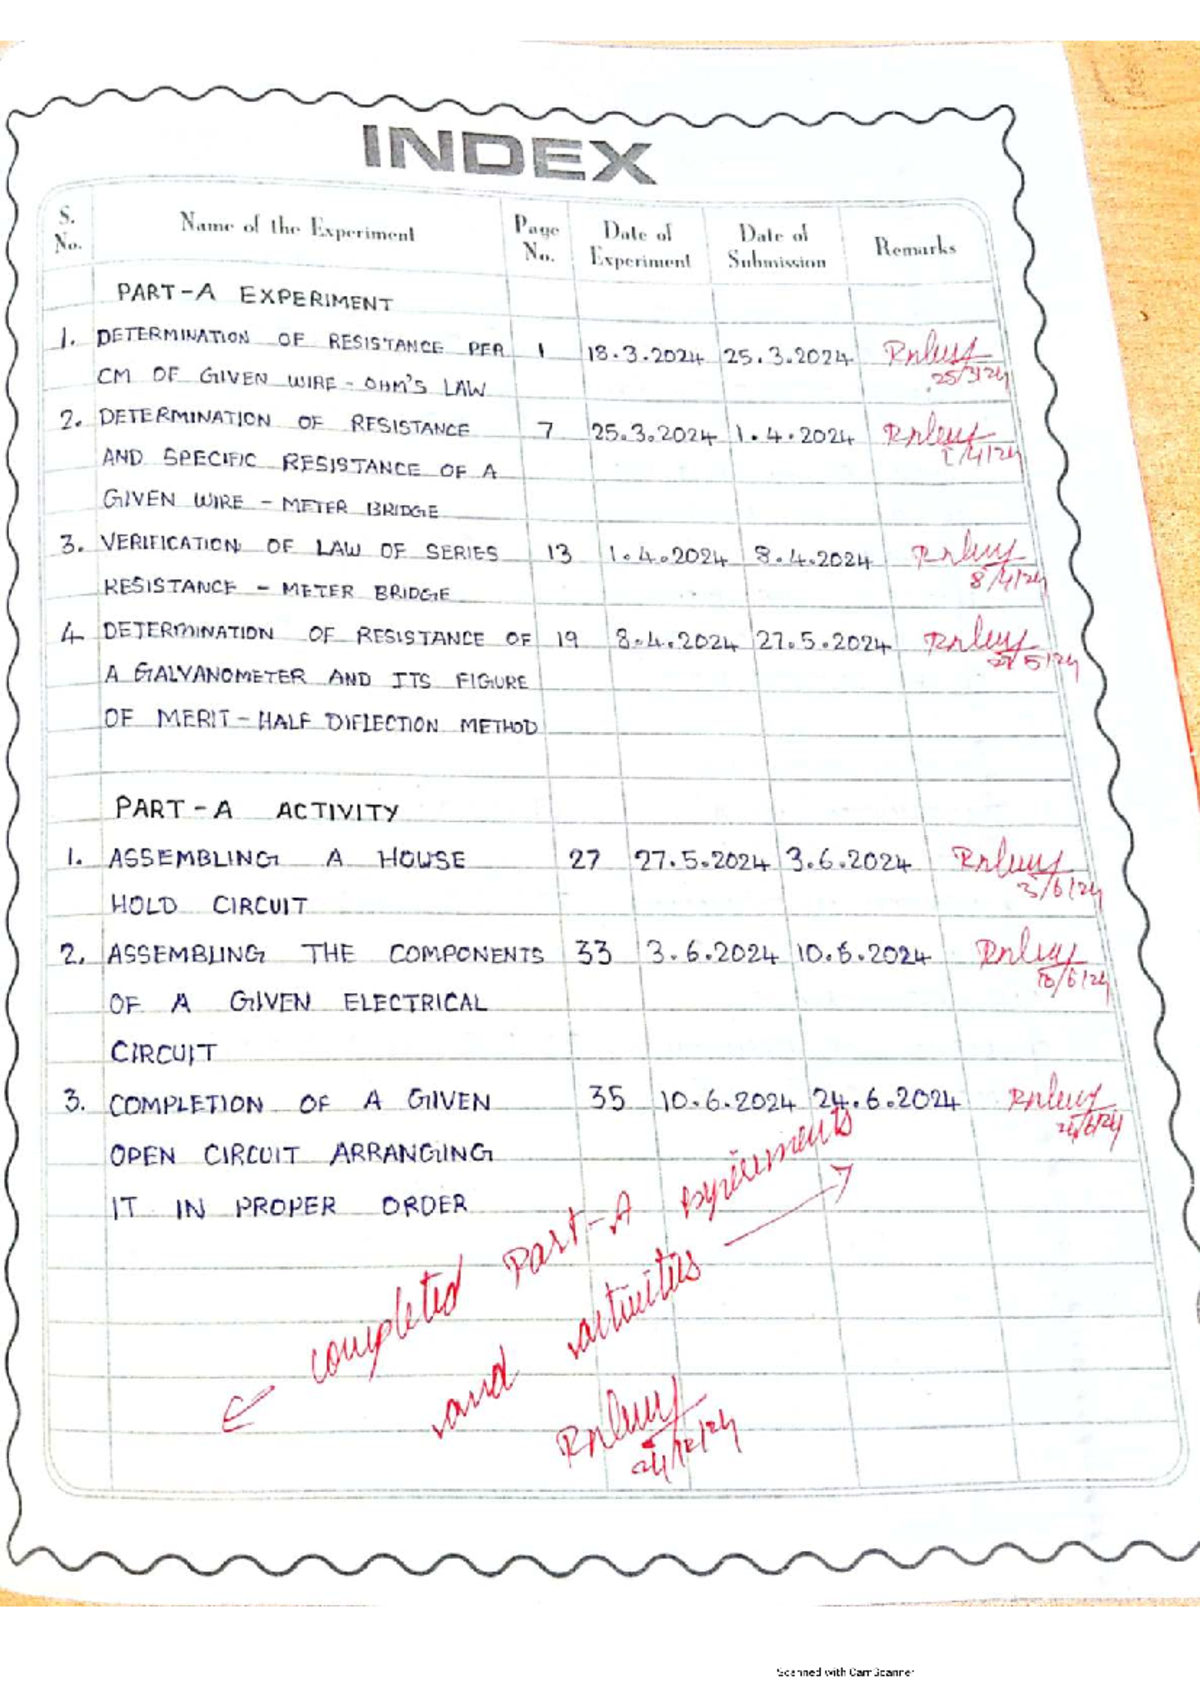 INDEX
S. No. Name of the Experiment Page No. Date of Experiment Date of Submission Remarks
PART-A EXPERIMENT
1. DETERMINATION OF RESISTANCE PER 1 18.3.2024 25.3.2024
25/3/24
CM OF GIVEN WIRE - OHM'S LAW
2. DETERMINATION OF RESISTANCE 7 25.3.2024 1.4.2024
1/4/24
AND SPECIFIC RESISTANCE OF A
GIVEN WIRE - METER BRIDGE
3. VERIFICATION OF LAW OF SERIES 13 1.4.2024 8.4.2024
8/4/24
RESISTANCE - METER BRIDGE
4. DETERMINATION OF RESISTANCE OF 19 8.4.2024 27.5.2024
27/5/24
A GALVANOMETER AND ITS FIGURE
OF MERIT - HALF DIFLECTION METHOD
PART-A ACTIVITY
1. ASSEMBLING A HOUSE 27 27.5.2024 3.6.2024
3/6/24
HOLD CIRCUIT
2. ASSEMBLING THE COMPONENTS 33 3.6.2024 10.6.2024
10/6/24
OF A GIVEN ELECTRICAL
CIRCUIT
3. COMPLETION OF A GIVEN 35 10.6.2024 24.6.2024
24/6/24
OPEN CIRCUIT ARRANGING
IT IN PROPER ORDER
completed Part-A experiments
and activities
Scanned with CamScanner